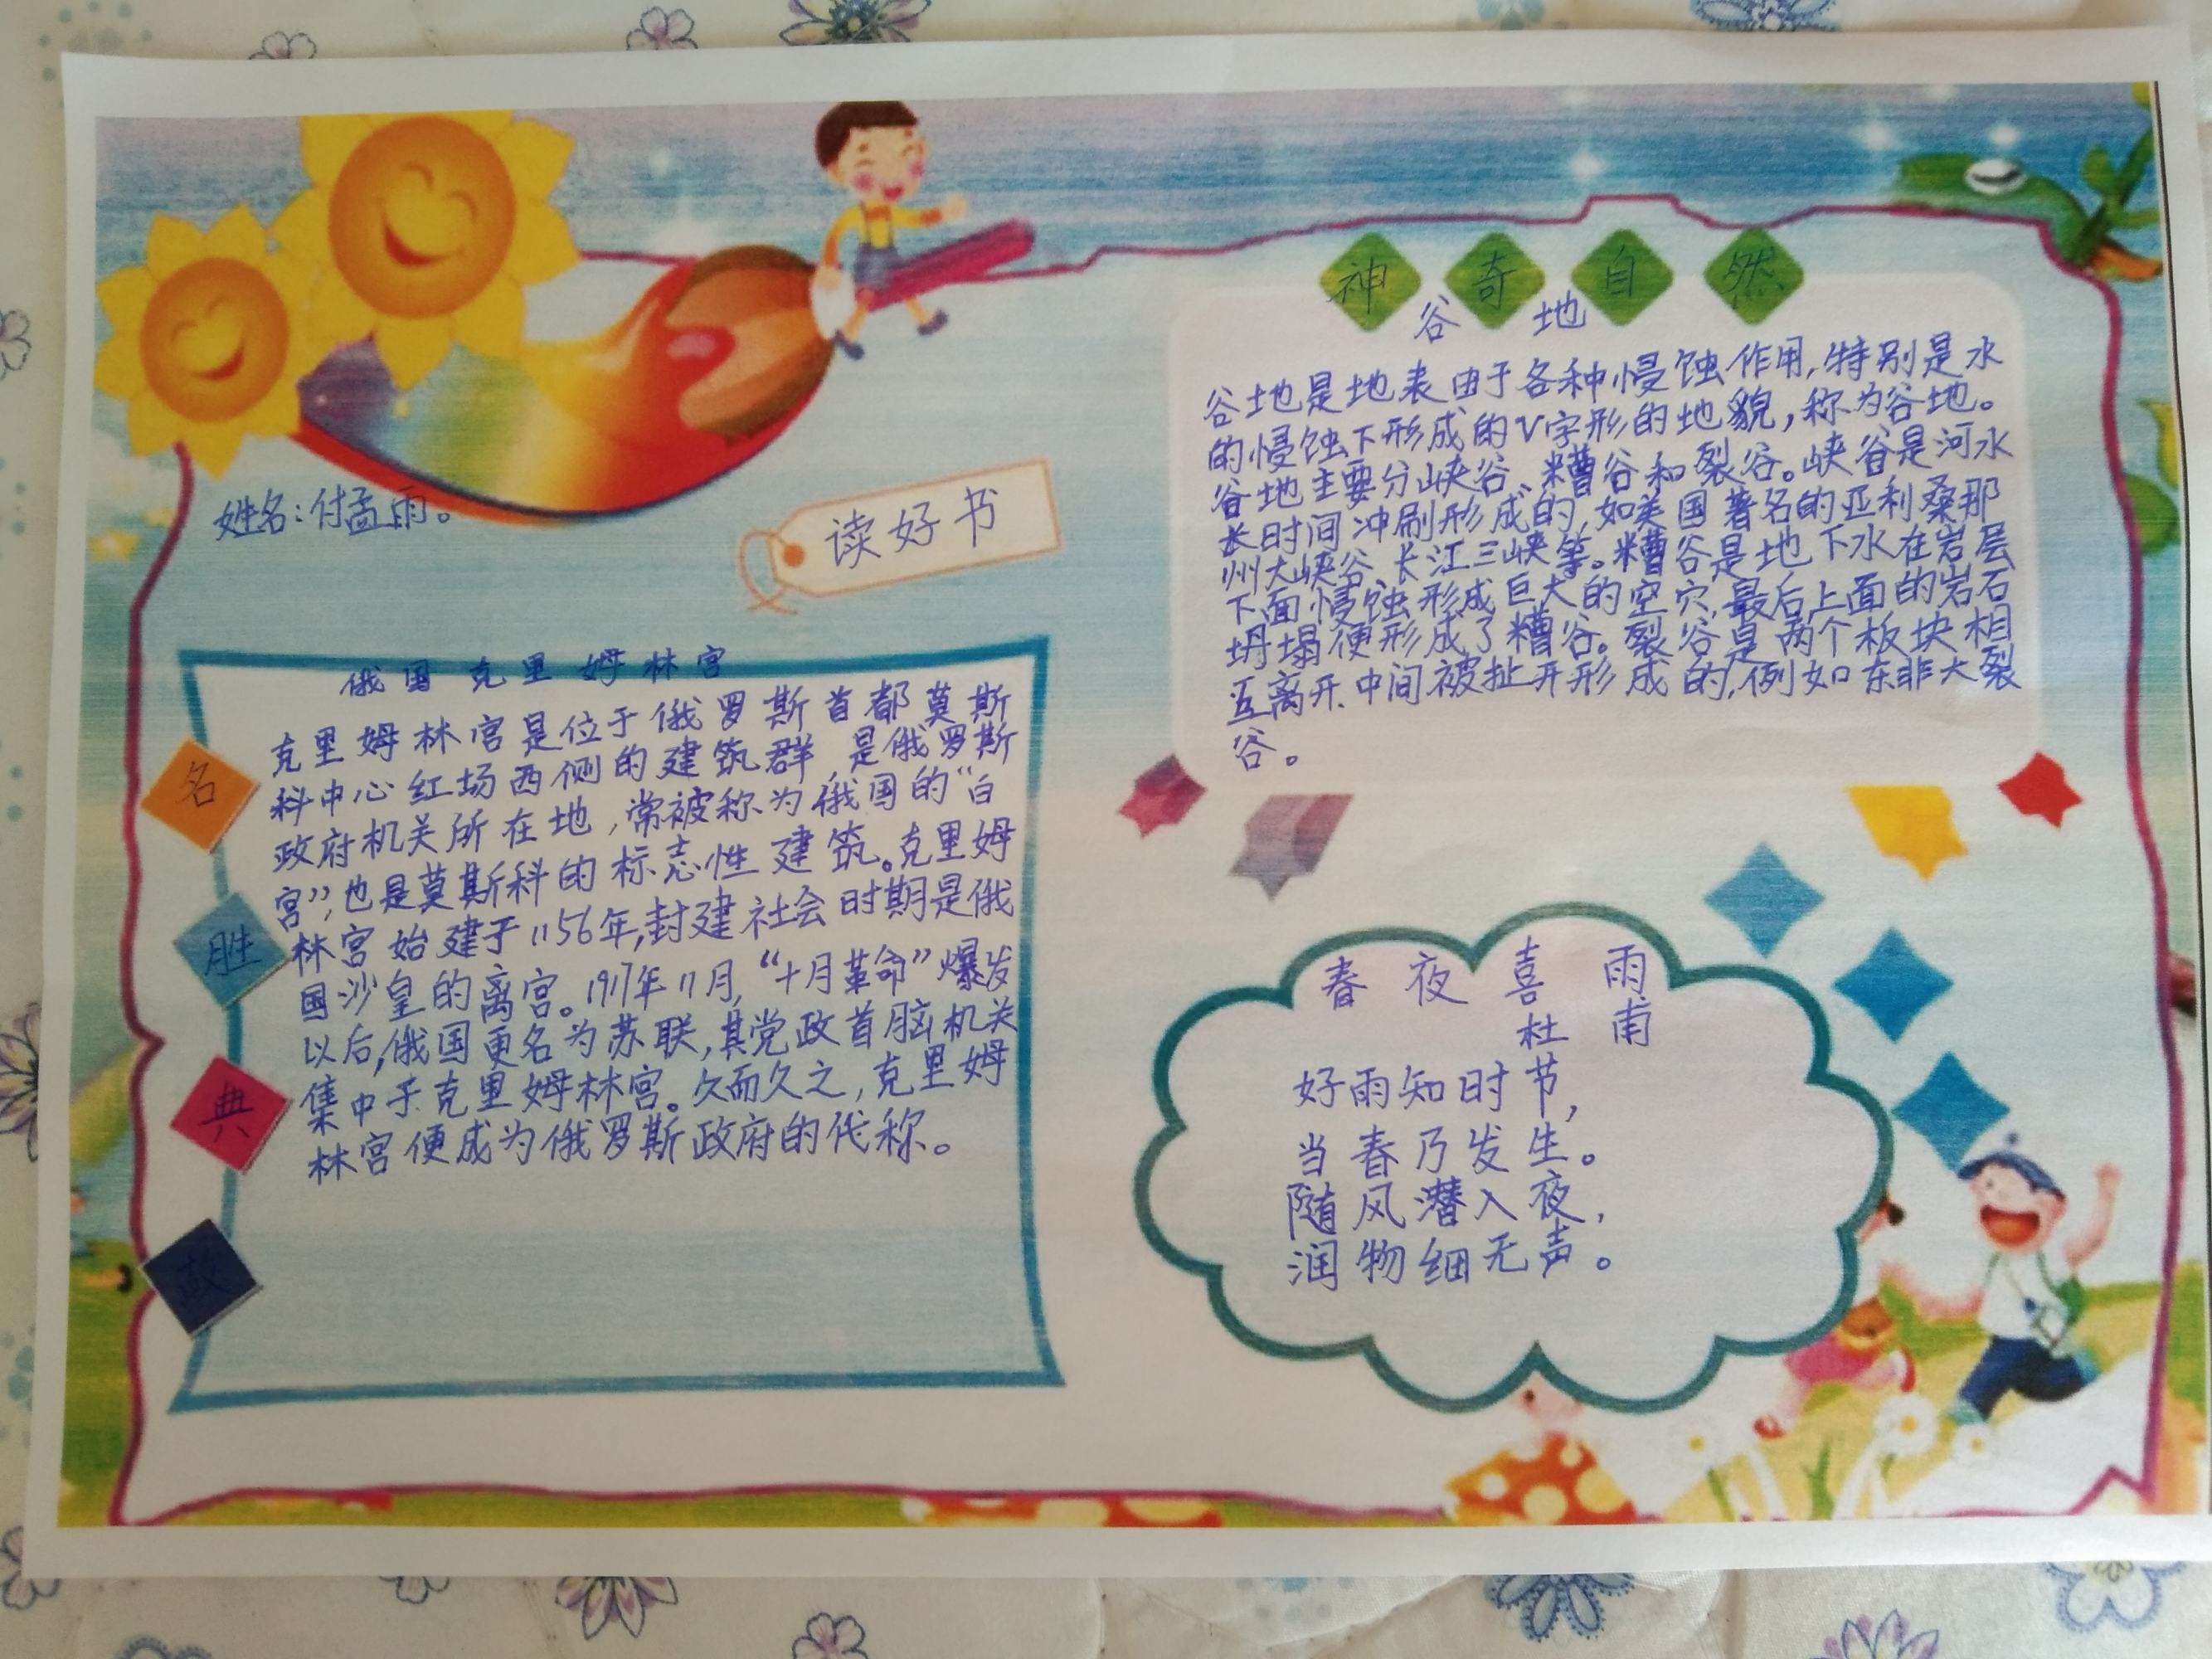 姓名:付孟雨。
读好书
名胜典故
俄国克里姆林宫
克里姆林宫是位于俄罗斯首都莫斯
科中心红场西侧的建筑群,是俄罗斯
政府机关所在地,常被称为俄国的“白
宫”,也是莫斯科的标志性建筑。克里姆
林宫始建于1156年,封建社会时期是俄
国沙皇的离宫。1917年11月,“十月革命”爆发
以后,俄国更名为苏联,其党政首脑机关
集中于克里姆林宫。久而久之,克里姆
林宫便成为俄罗斯政府的代称。
神奇自然
谷地
谷地是地表由于各种慢蚀作用,特别是水
的慢蚀下形成的V字形的地貌,称为谷地。
谷地主要分峡谷、糟谷和裂谷。峡谷是河水
长时间冲刷形成的,如美国著名的亚利桑那
州大峡谷、长江三峡等。糟谷是地下水在岩层
下面慢蚀形成巨大的空穴,最后上面的岩石
坍塌便形成了糟谷。裂谷是两个板块相
互离开中间被扯开形成的,例如东非大裂
谷。
春夜喜雨
杜甫
好雨知时节,
当春乃发生。
随风潜入夜,
润物细无声。